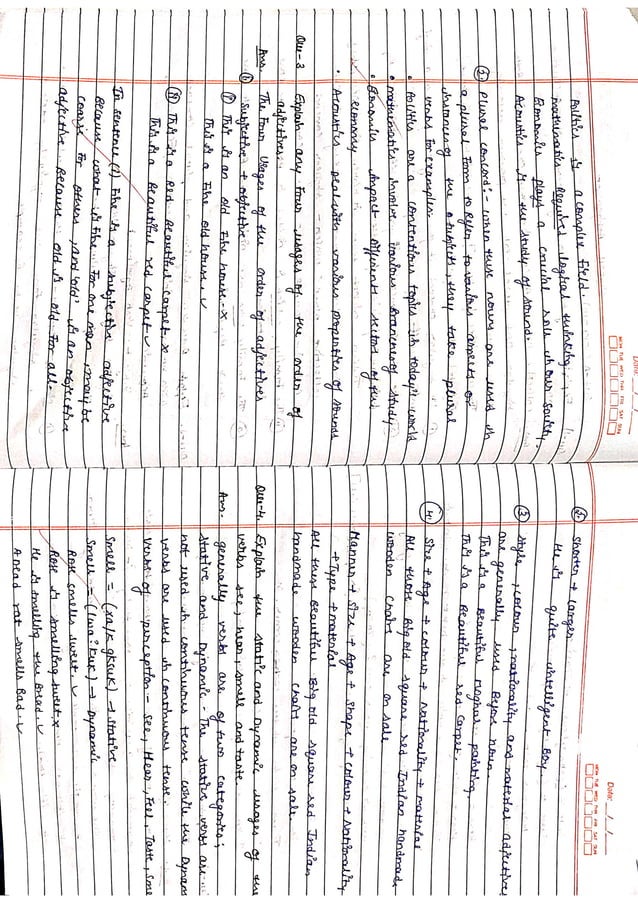 Date: __/__/__
MON TUE WED THU FRI SAT SUN
Politics is a complex field.
mathematics Require logical thinking.
Economics plays a crucial role in our society.
Acoustics is the study of sound.
② Plural concord :- when these nouns are used in
a plural Form to Refer to various aspects or
instances of the subjects, they take plural
verbs For examples.
• Politics are a contentious topics in today's world
• mathematics involve various Branches of study
• Economics impact different sector of the
economy
• Acoustics deal with various properties of sounds
Que-3 Explain any Four usages of the order of
adjectives.
Ans. The Four usages of the order of adjectives
① subjective + objective
This is an old Fine house. x
This is a Fine old house. ✓
This is a Red Beautiful carpet. x
This is a Beautiful red carpet. ✓
In sentence (1) Fine is a subjective adjective
Because what is Fine For one man, may be
coarse For others, and 'old' is an objective
adjective Because old is old For all.
Date: __/__/__
MON TUE WED THU FRI SAT SUN
② Shorter + Larger
He is quite intelligent Boy
③ Style, colour, nationality and material adjectives
are generally used Before noun
This is a Beautiful Mughal painting
This is a Beautiful red carpet.
④ Size + Age + colour + nationality + material
All those Big old square red Indian handmade
wooden chairs are on sale
Manner + Size + Age + Shape + colour + Nationality
+ Type + material
All these Beautiful Big old square red Indian
handmade wooden chairs are on sale
Que-4. Explain the static and Dynamic usages of the
verbs see, hear, smell and taste.
Ans. generally verbs are of two categories;
stative and Dynamic - The stative verbs are
not used in continuous tense while the Dynamic
verbs are used in continuous tense.
Verbs of perception - See, Hear, Feel, Taste,
Smell = → stative
Smell = → Dynamic
Rose smells sweet. ✓
Rose is smelling sweet. x
He is smelling the Bread. ✓
A dead rat smells Bad. ✓